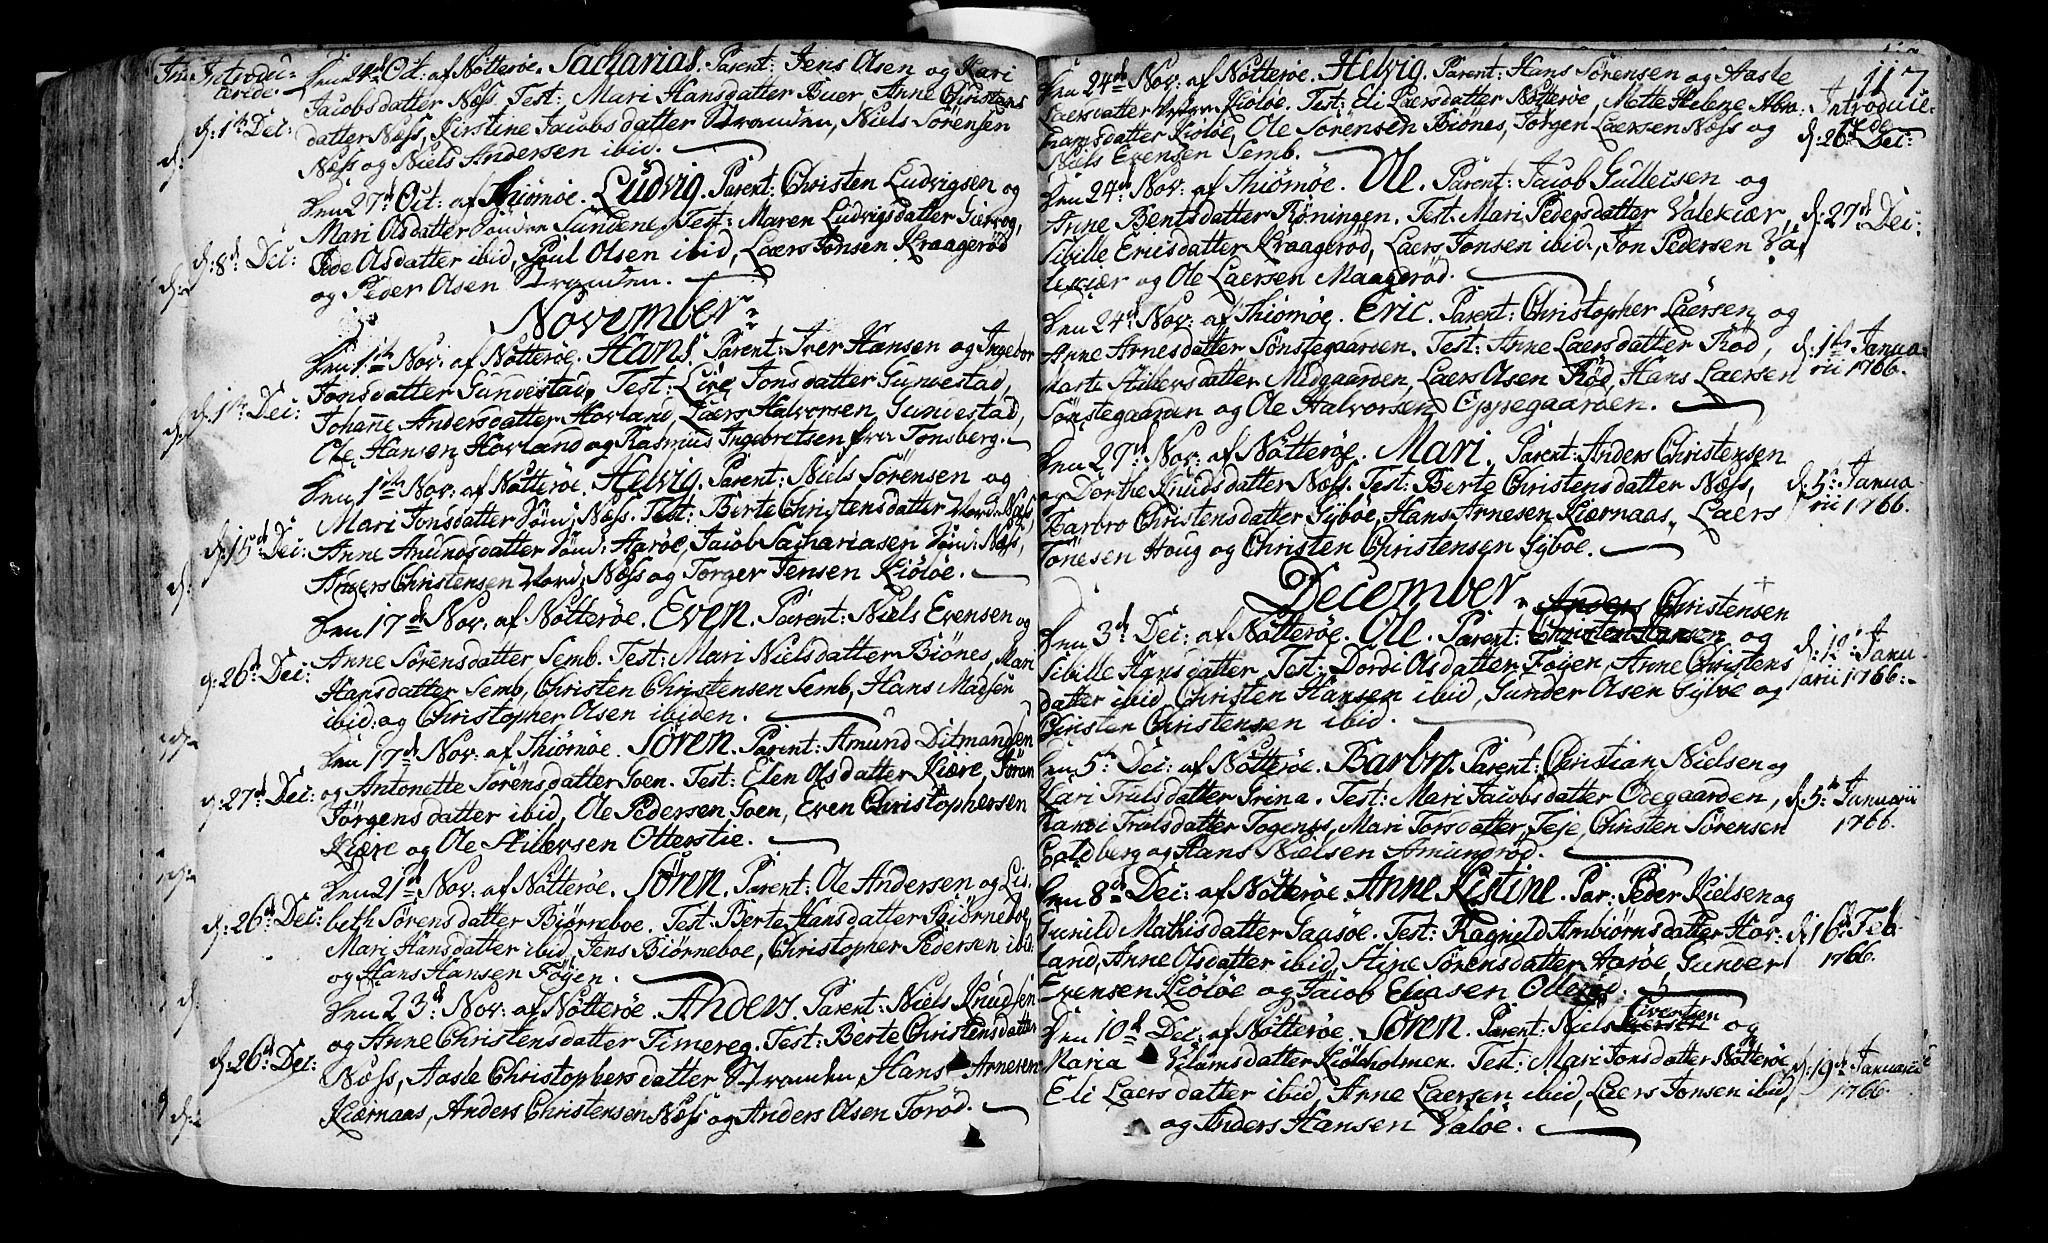 Introdu-
cerede.
Den 24d Oct: af Nötteröe. Sacharias. Parent: Jens Olsen og Kari
Jacobsdatter Næss. Test: Mari Hansdatter Buer, Anne Christens
d: 1th Dec:
datter Næss, Kirstine Jacobsdatter Stranden, Niels Sörensen
Næss og Niels Andersen ibid.
Den 27d Oct: af Thiömöe. Ludvig. Parent: Christen Ludvigsen og
Mari Olsdatter Sönden Sundene, Test: Maren Ludvigsdatter
d: 8d Dec:
Olsdatter ibid, Poul Olsen ibid, Laers Jonsen Kraageröd
og Peder Olsen Stranden.
November
Den 1th Nov: af Nötteröe. Hans. Parent: Iver Hansen og Ingebor
Jonsdatter Gundestad, Test: Live Jonsdatter Gundestad,
d: 1th Dec:
Johane Andersdatter Hovland, Laers Halvorsen Gundestad,
Ole Hansen Hovland og Rasmus Ingebretsen fra Tonsberg.
Den 1th Nov: af Nötteröe. Helvig. Parent: Niels Sörensen og
Mari Jonsdatter Sönd: Næss. Test: Berte Christensdatter Nord: Næss,
d: 15d Dec:
Anne Amundsdatter Sönd: Haröe, Jacob Sachariasen Sönd: Næss,
Anders Christensen Nord: Næss og Torger Jensen Kiölöe.
Den 17d Nov: af Nötteröe. Even. Parent: Niels Evensen og
Anne Sörensdatter Semb. Test: Mari Nielsdatter Biönes, Mari
d: 26d Dec:
Hansdatter Semb, Christen Christensen Semb, Hans Madsen
ibid: og Christopher Olsen ibiden.
Den 17d Nov: af Thiömöe. Sören. Parent: Amund Ditmandsen
og Antonette Sörensdatter Goen. Test: Elen Olsdatter Kiære, Jöran
d: 27d Dec:
Jörgensdatter ibid, Ole Pedersen Goen, Even Christophersen
Kiære og Ole Stillevsen Otterstie.
Den 21d Nov: af Nötteröe. Sören. Parent: Ole Andersen og Lis-
beth Sörensdatter Biörneboe. Test: Berte Hansdatter Biörneboe,
d: 26d Dec:
Mari Hansdatter ibid, Jens Biörneboe, Christopher Pedersen ibid:
og Hans Hansen Föyen.
Den 23d Nov: af Nötteröe. Anders. Parent: Niels Knudsen
og Anne Christensdatter Timereg. Test: Berte Christensdatter
d: 26d Dec:
Næss, Aasle Christophersdatter Stranden, Hans Arnesen
Kiærnaas, Anders Christensen Næss og Anders Olsen Toröd.
117
Den 24d Nov: af Nötteröe. Helvig. Parent: Hans Sörensen og Aasle
Laersdatter Kiölöe. Test: Eli Laersdatter Nötteröe, Mette Helene Abra-
Introduce-
rede
hamsdatter Kiölöe, Ole Sörensen Biönes, Jörgen Laersen Næss og
d: 26d Dec:
Niels Evensen Semb.
Den 24d Nov: af Thiömöe. Ole. Parent: Jacob Gulleisen og
Anne Bentsdatter Röningen. Test: Mari Pedersdatter Valekiær,
d: 27d Dec:
Sibille Ericsdatter Kraageröd, Laers Jonsen ibid., Jon Pedersen Va-
lekiær og Ole Laersen Maageröd.
Den 24d Nov: af Thiömöe. Eric. Parent: Christopher Laersen og
Anne Arnesdatter Sönstegaarden. Test: Anne Laersdatter Röd,
d: 1th Janua-
rii 1766.
Marte Stillevsdatter Midgaarden, Laers Olsen Röd, Hans Laersen
Sönstegaarden og Ole Halvorsen Eppegaarden.
Den 27d Nov: af Nötteröe. Mari. Parent: Anders Christensen
og Dorthe Knudsdatter Næss. Test: Berte Christensdatter Næss,
d: 5th Janua-
rii 1766.
Barbro Christensdatter Gyböe, Hans Arnesen Kiærnaas, Laers
Tönesen Houg og Christen Christensen Gyboe.
December
Anders Christensen
Den 3d Dec: af Nötteröe. Ole. Parent: Christen Hansen og
Sibille Hansdatter. Test: Dorde Olsdatter Föyen, Anne Christens
d: 12d Janu-
arii 1766.
datter ibid, Christen Hansen ibid, Gunder Olsen Gyboe og
Christen Christensen ibid.
Den 5th Dec: af Nötteröe. Barbro. Parent: Christian Nielsen og
Kari Trulsdatter Grina. Test: Mari Jacobsdatter Odegaarden,
d: 5th Januarii
1766.
Randi Trulsdatter Togenes, Mari Torsdatter Teje, Christen Sörensen
Boldberg og Hans Nielsen Amundröd.
Den 8d Dec: af Nötteröe. Anne Kistine. Par: Peder Kielsen og
Gunild Mathisdatter Gaasöe. Test: Ragnild Ambiörnsdatter Hov-
d: 16d Feb
1766.
land, Anne Olsdatter ibid, Stine Sörensdatter Haröe, Gunder
Evensen Kiölöe og Jacob Eliasen Olleröd.
Sivertsen
Den 10d Dec: af Nötteröe. Sören. Parent: Niels og
Maria Vilumsdatter Kiölholmen. Test: Mari Jonsdatter Nötteröe,
d: 19d Januarii
1766.
Eli Laersdatter ibid, Arne Laersen ibid, Laers Jonsen ibid,
og Anders Hansen Valöe.